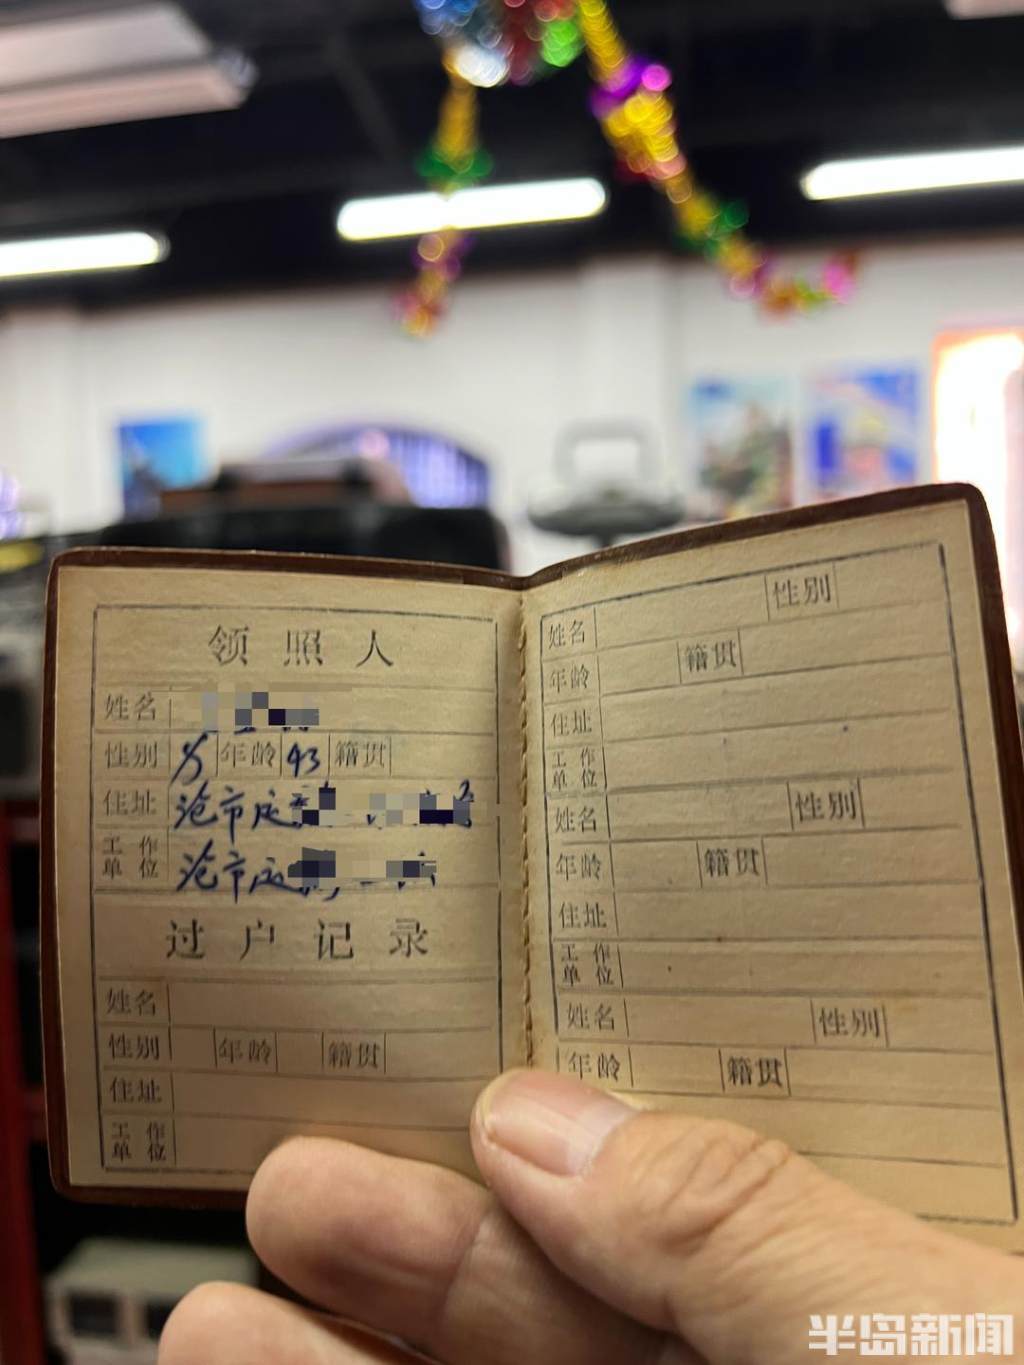 领照人
姓名
性别 男 年龄 43 籍贯
住址 沧市区
工作单位 沧市区
过户记录
姓名
性别 年龄 籍贯
住址
工作单位
姓名 性别
年龄 籍贯
住址
工作单位
姓名 性别
年龄 籍贯
住址
工作单位
姓名 性别
年龄 籍贯
半岛新闻